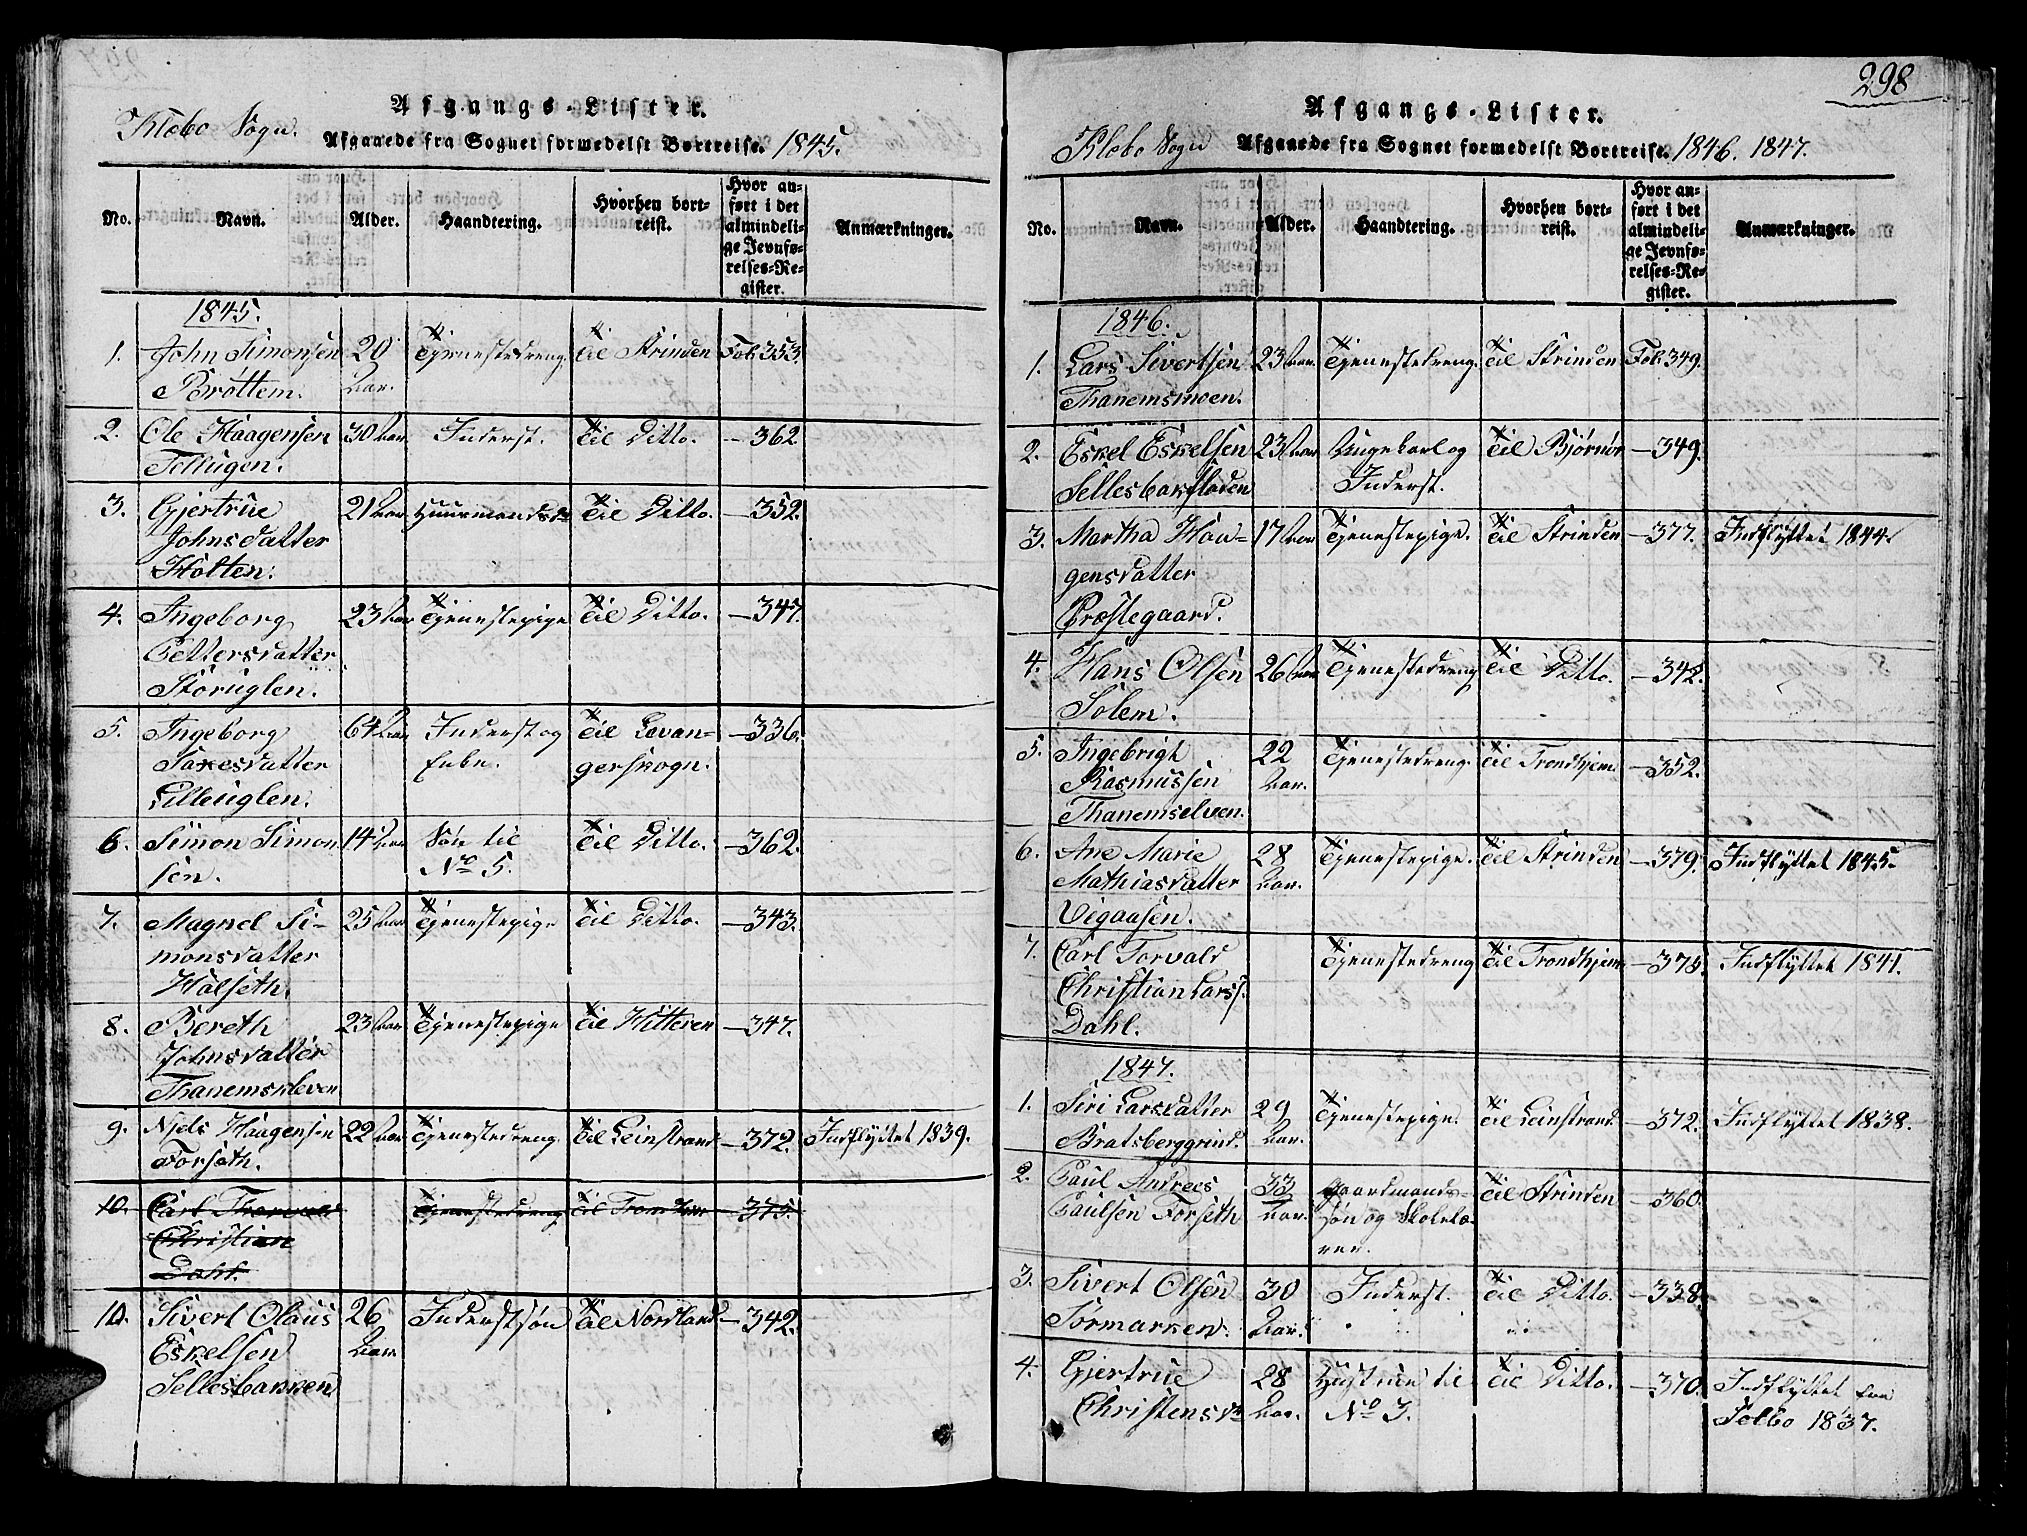 Klæbo Sogn.
Afgangs-Lister.
Afgaaede fra Sognet formedelst Bortreise. 1845.
No. Navn. Alder. Haandtering. Hvorhen bortreist. Hvor anført i det almindelige Jevnførelses-Register. Anmærkninger.
1845.
1. John Simonsen 20 Tjenestedreng. Til Strinden Fol. 353.
Brøttem. Aar.
2. Ole Haagensen 30 Aar Inderst. Til Ditto. — 362.
Tellugen.
3. Gjertrue 21 Aar Huusmandsd. Til Ditto. — 352.
Johnsdatter
Holten.
4. Ingeborg 23 Aar Tjenestepige Til Ditto. — 347.
Pettersdatter
Storuglen.
5. Ingeborg 64 Aar Inderst og Til Levan- — 336.
Taxesdatter Enke. gerskogn.
Lilleuglen.
6. Simon Simon 14 Aar Søn til Til Ditto. — 362.
sen. No 5.
7. Magnel Si- 25 Aar Tjenestepige Til Ditto. — 343.
monsdatter
Halseth.
8. Bereth 23 Aar Tjenestepige Til Hitteren — 347.
Johnsdatter
Thanemskleven
9. Njels Haagensen 22 Aar Tjenestedreng. Til Leinstrand — 372. Indflyttet 1839.
Forseth.
10. Carl Thorvald Tjenestedreng Til Trondhjem — 375.
Christian
Dahl.
10. Sivert Olaus 26 Inderstsøn Til Nordland — 342.
Eskelsen Aar
Sellesbakken
298
Klæbo Sogn
Afgangs-Lister.
Afgaaede fra Sognet formedelst Bortreise. 1846. 1847.
No. Navn. Alder. Haandtering. Hvorhen bortreist. Hvor anført i det almindelige Jevnførelses-Register. Anmærkninger.
1846.
1. Lars Sivertsen 23 Aar Tjenestedreng. Til Strinden Fol. 349.
Thanemsmoen.
2. Eskel Eskelsen 23 Aar Ungekarl og Til Bjørnør — 349.
Sellesbakfloden Inderst.
3. Martha Hau- 17 Aar Tjenestepige. Til Strinden — 377. Indflyttet 1844.
gensdatter
Præstegaard.
4. Hans Olsen 26 Aar Tjenestedreng Til Ditto. — 342.
Solem.
5. Ingebrigt 22 Tjenestedreng Til Trondhjem — 352.
Rasmussen Aar.
Thanemselven.
6. Ane Marie 28 Tjenestepige. Til Strinden — 379. Indflyttet 1845.
Mathiasdatter Aar.
Vigaasen.
7. Carl Torvald Tjenestedreng Til Trondhjem — 375. Indflyttet 1841.
Christian Larss.
Dahl.
1847.
1. Siri Larsdatter 29 Tjenestepige. Til Leinstrand — 372. Indflyttet 1838.
Bratsberggrind. Aar.
2. Paul Andreas 33 Gaardmands- Til Strinden — 360.
Paulsen Forseth Aar. søn og Skolelæ-
rer.
3. Sivert Olsen 30 Inderst. Til Ditto. — 338.
Sørmarken. Aar.
4. Gjertrue 28 Hustrue til Til Ditto. — 370. Indflyttet fra
Christensd. Aar. No 3. Selbo 1837.